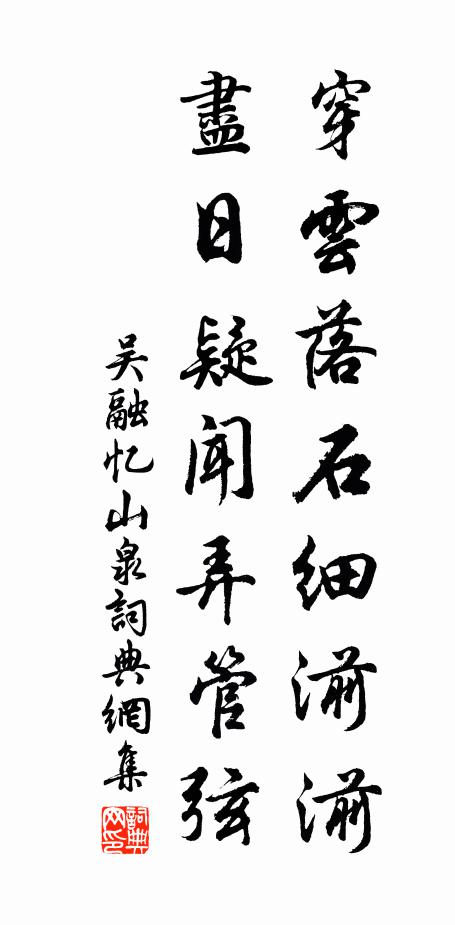 穿雲落石細湔湔
盡日疑聞弄管弦
吴融忆山泉詞典網集
詞典網印